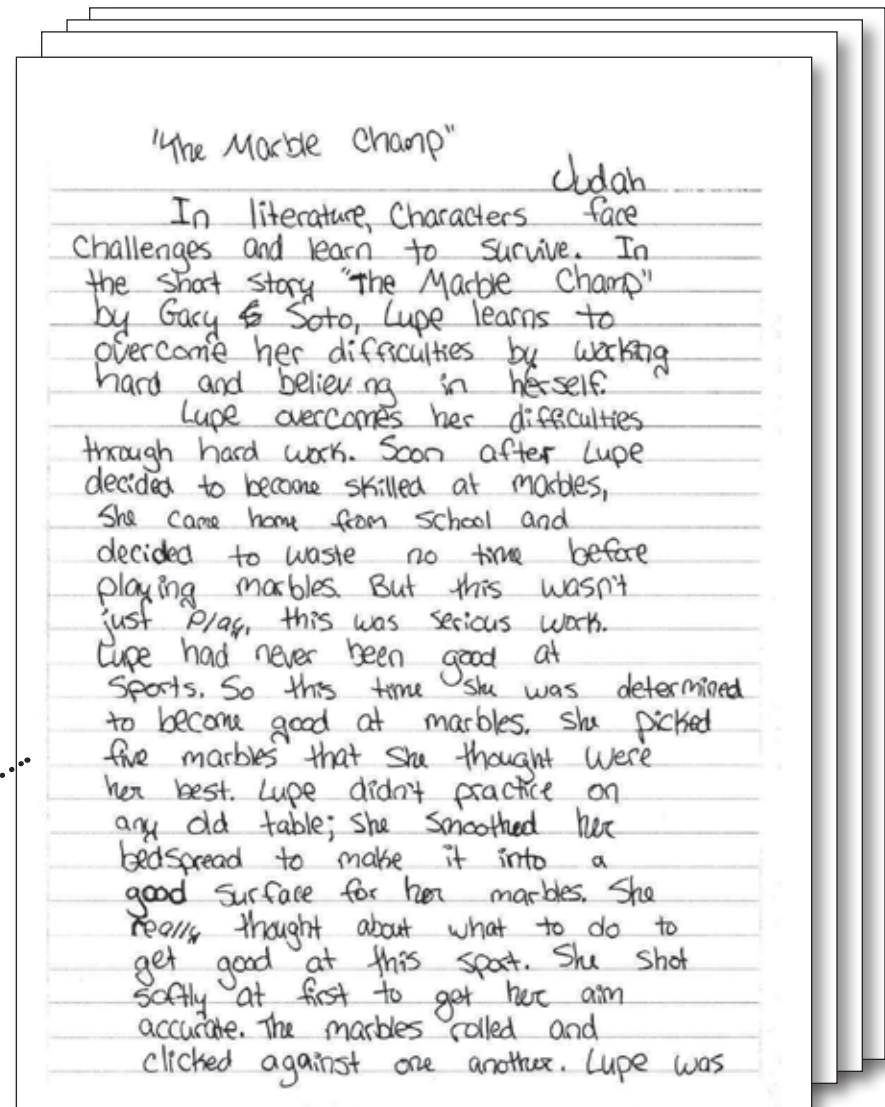 "The Marble Champ"
Judah
In literature, Characters face
Challenges and learn to survive. In
the short story "The Marble Champ"
by Gary Soto, Lupe learns to
overcome her difficulties by working
hard and believing in herself.
Lupe overcomes her difficulties
through hard work. Soon after Lupe
decided to become skilled at marbles,
She came home from School and
decided to waste no time before
playing marbles. But this wasn't
just play, this was serious work.
Lupe had never been good at
Sports. So this time she was determined
to become good at marbles. She picked
five marbles that she thought were
her best. Lupe didn't practice on
any old table; she smoothed her
bedspread to make it into a
good surface for her marbles. She
really thought about what to do to
get good at this sport. She shot
softly at first to get her aim
accurate. The marbles rolled and
clicked against one another. Lupe was